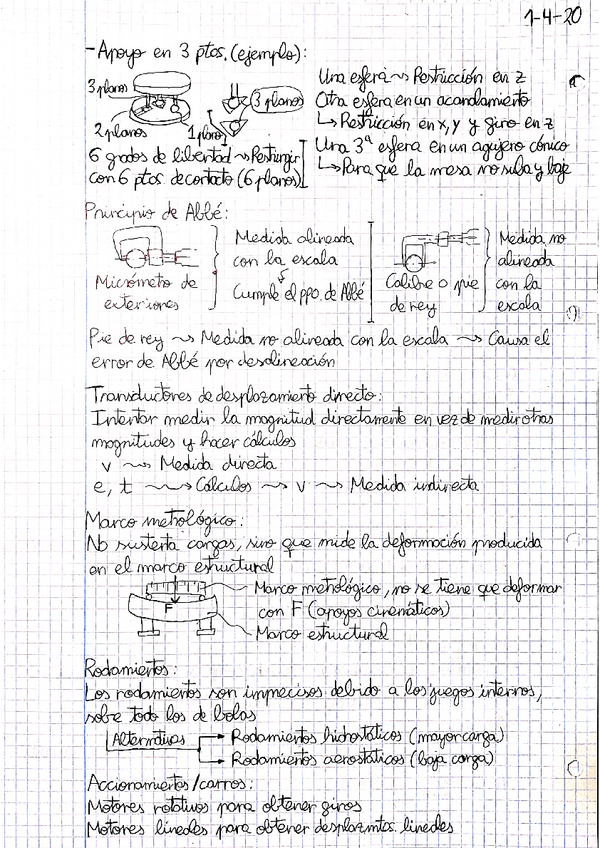 1-4-20
-Apoyo en 3 ptos. (ejemplo):
3 planos
2 planos
1 plano
3 planos
6 grados de libertad ⇝ Restringir
con 6 ptos de contacto (6 planos)
Una esfera ⇝ Restricción en z
Otra esfera en un acanalamiento
↳ Restricción en x, y y giro en z
Una 3ª esfera en un agujero cónico
↳ Para que la mesa no suba y baje
Principio de Abbé:
Micrómetro de
exteriores
Medida alineada
con la escala
Cumple el ppo. de Abbé
Calibre o pie
de rey
Medida no
alineada
con la
escala
Pie de rey ⇝ Medida no alineada con la escala ⇝ Causa el
error de Abbé por desalineación
Transductores de desplazamiento directo:
Intentar medir la magnitud directamente en vez de medir otras
magnitudes y hacer cálculos
v ⇝ Medida directa
e, t ⇝ Cálculos ⇝ v ⇝ Medida indirecta
Marco metrológico:
No sustenta cargas, sino que mide la deformación producida
en el marco estructural
F
Marco metrológico, no se tiene que deformar
con F (apoyos cinemáticos)
Marco estructural
Rodamientos:
Los rodamientos son imprecisos debido a los juegos internos,
sobre todo los de bolas
Alternativas
Rodamientos hidrostáticos (mayor carga)
Rodamientos aerostáticos (baja carga)
Accionamientos/carros:
Motores rotativos para obtener giros
Motores lineales para obtener desplazmtos. lineales